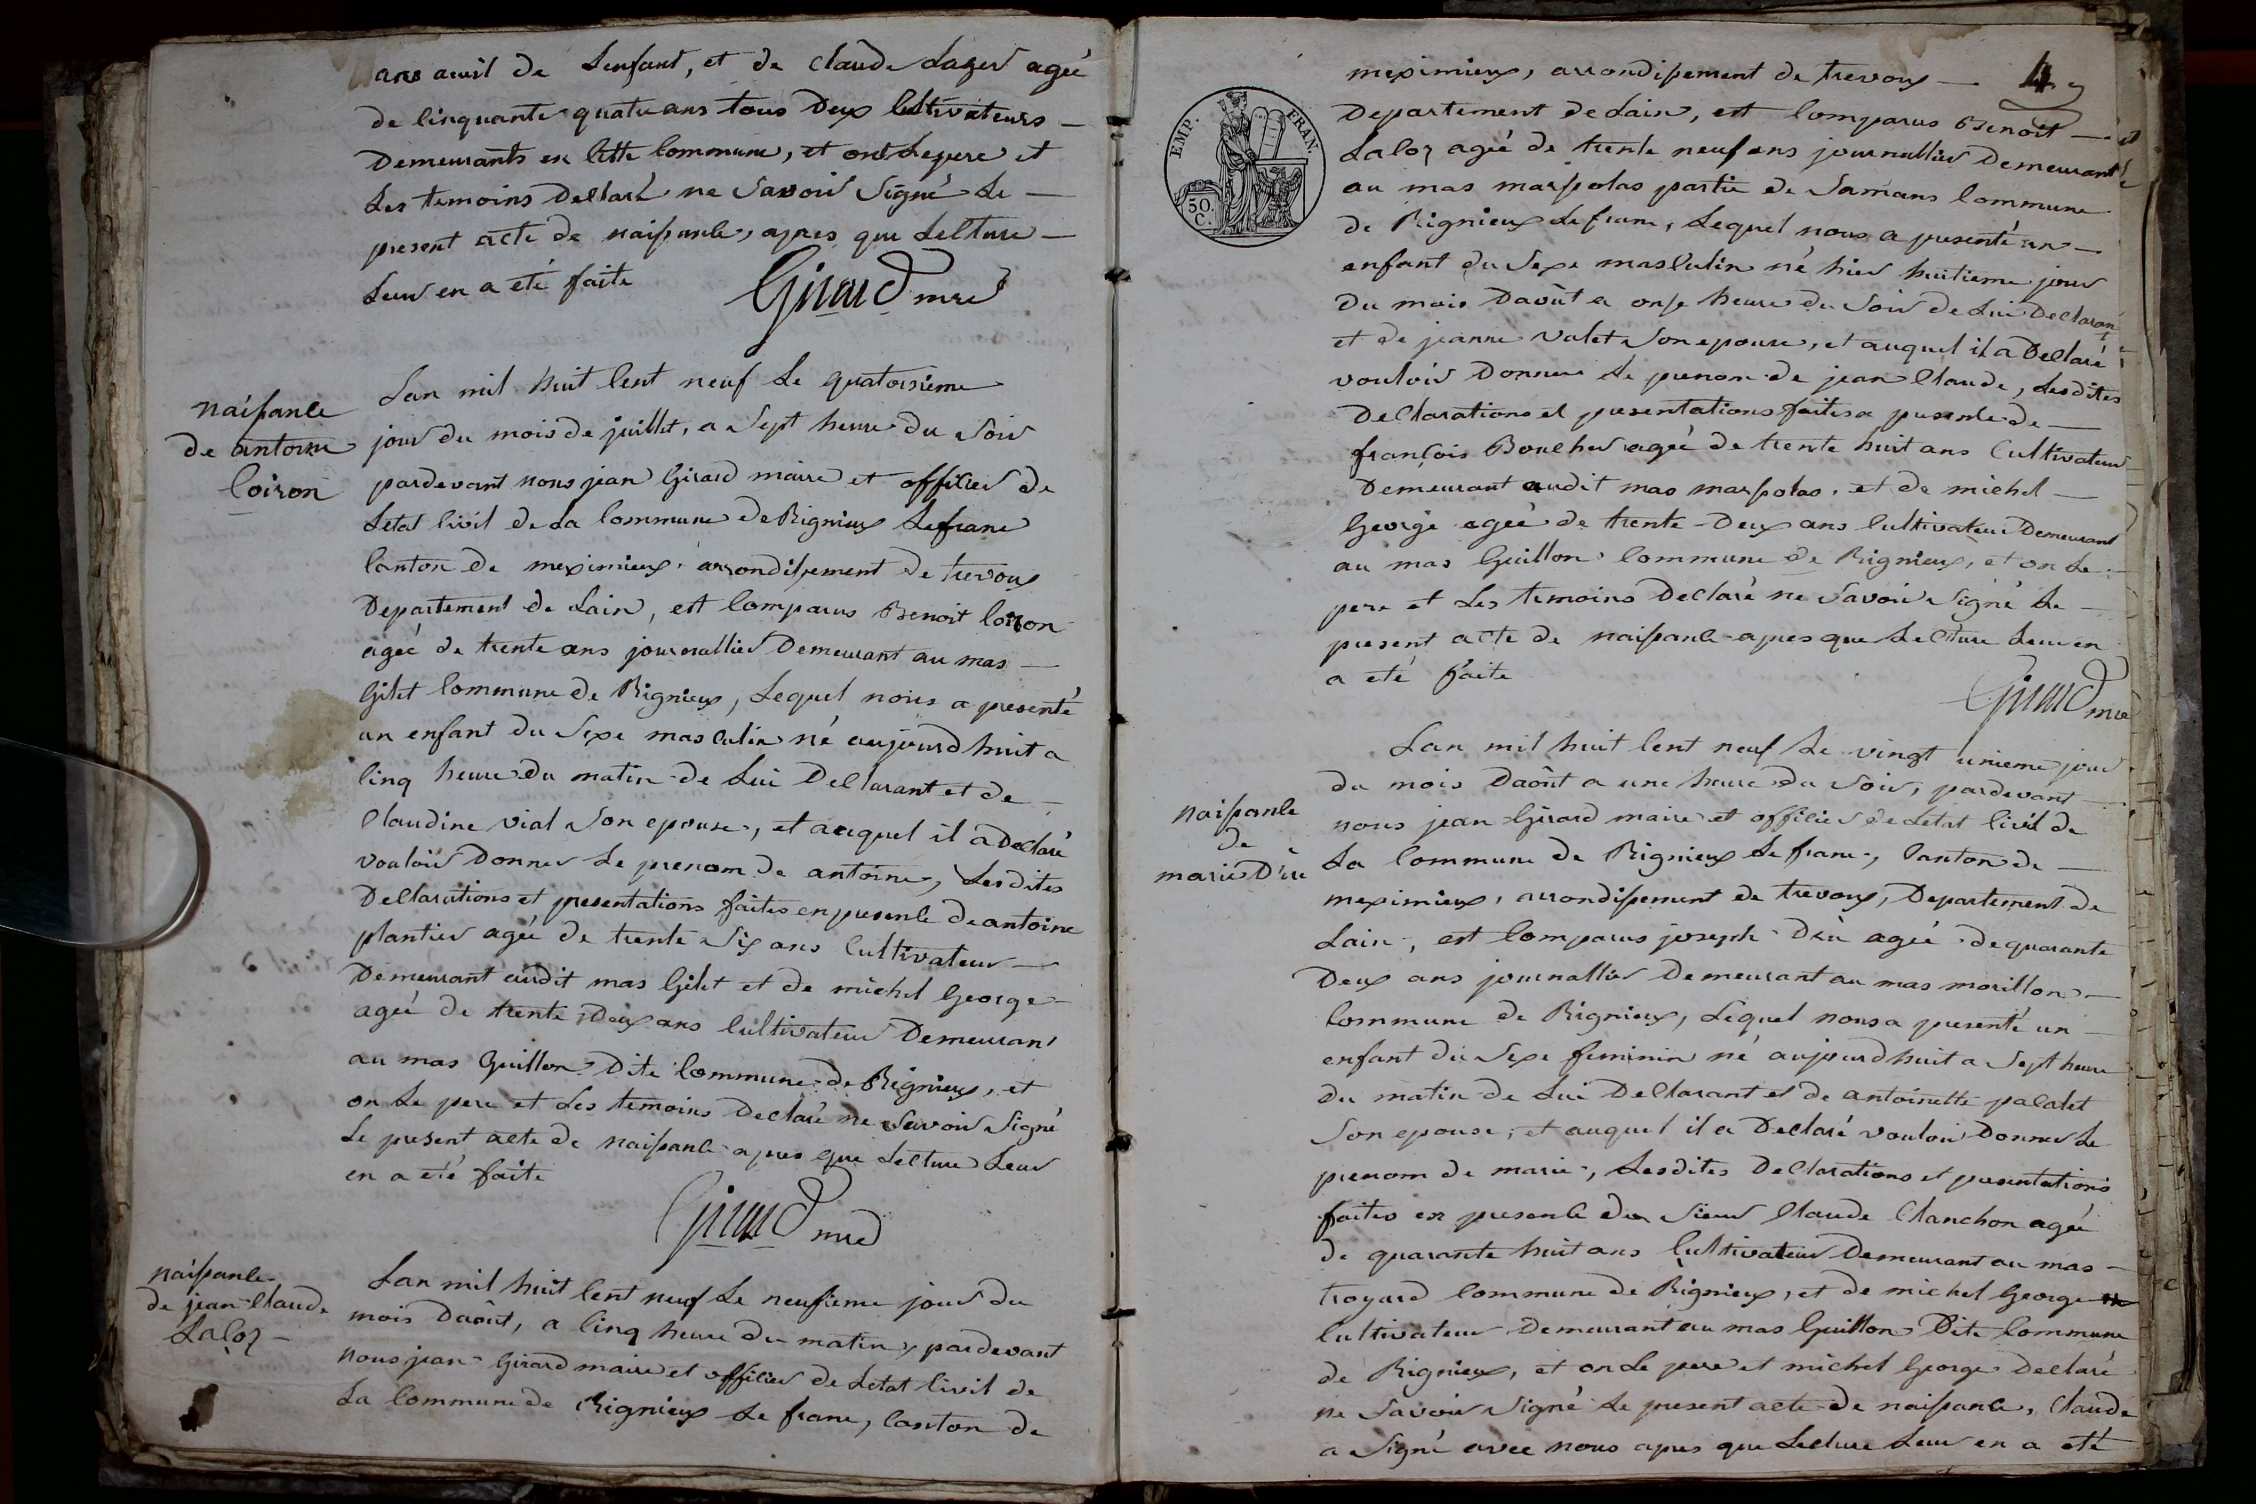 ans aieul de Lenfant, et de Claude Lager agée
de Cinquante quatre ans tous Deux Cultivateurs
Demeurants en Cette Commune, et ont Le pere et
Les temoins Declaré ne Savoir Signé Le
present acte de naissance, apres que Lecture
Leur en a eté faite
Girard mre
naissance
de antoine
Coiron
Lan mil huit Cent neuf Le quatorsieme
jour du mois de juillet, a Sept heure du Soir
pardevant nous jean Girard maire et officier de
Letat Civil de La Commune de Rignieux Lefranc
Canton de meximieux, arrondissement de trevoux
Departement de Lain, est Comparus Benoit Coiron
agée de trente ans journallier Demeurant au mas
Gilet Commune de Rignieux, Lequel nous a presenté
un enfant du Sexe masculin né aujourdhuit a
Cinq heure du matin de Lui Declarant et de
Claudine vial Son epouse, et auquel il a Declaré
vouloir Donner Le prenom de antoine, Lesdites
Declarations et presentations faites en presence de antoine
plantier agée de trente Six ans Cultivateur
Demeurant audit mas Gilet et de michel George
agée de trente Deux ans Cultivateur Demeurant
au mas Guillon Dite Commune de Rignieux, et
on Le pere et Les temoins Declaré ne Savoir Signé
Le present acte de naissance apres que Lecture Leur
en a eté faite
Girard mre
naissance
de jean Claude
Laloz
Lan mil huit Cent neuf Le neufieme jour du
mois Daoût, a Cinq heure du matin, pardevant
nous jean Girard maire et officier de Letat Civil de
La Commune de Rignieux Le franc, Canton de
4
EMP. FRAN.
50.
C.
meximieux, arrondissement de trevoux
Departement de Lain, est Comparus Benoit
Laloz agée de trente neuf ans journallier Demeurant
au mas marpolas partie de Samans Commune
de Rignieux Le franc, Lequel nous a presenté un
enfant du Sexe masculin né hier huitieme jour
Du mois Daoût a onse heure du Soir de Lui Declarant
et de jeanne valet Son epouse, et auquel il a Declaré
vouloir Donner Le prenom de jean Claude, Lesdites
Declarations et presentations faites a presence de
françois Boucher agée de trente huit ans Cultivateur
Demeurant audit mas marpolas, et de michel
George agée de trente Deux ans Cultivateur Demeurant
au mas Guillon Commune de Rignieux, et on Le
pere et Les temoins Declaré ne Savoir Signé Le
present acte de naissance apres que Lecture Leur en
a eté faite
Girard mre
naissance
de
marie Dèu
Lan mil huit Cent neuf Le vingt unieme jour
du mois Daoût a une heure du Soir, pardevant
nous jean Girard maire et officier de Letat Civil de
La Commune de Rignieux Le franc, Canton de
meximieux, arrondissement de trevoux, Departement de
Lain, est Comparus joseph Dèu agée de quarante
Deux ans journallier Demeurant au mas morillon
Commune de Rignieux, Lequel nous a presenté un
enfant du Sexe feminin né aujourdhuit a Sept heure
du matin de Lui Declarant et de antoinette palatet
Son epouse, et auquel il a Declaré vouloir Donner Le
prenom de marie, Lesdites Declarations et presentations
faites en presence du Sieur Claude Clanchon agée
de quarante huit ans Cultivateur Demeurant au mas
troyard Commune de Rignieux, et de michel George
Cultivateur Demeurant au mas Guillon Dite Commune
de Rignieux, et on Le pere et michel George Declaré
ne Savoir Signé Le present acte de naissance, Claude
a Signé avec nous apres que Lecture Leur en a eté